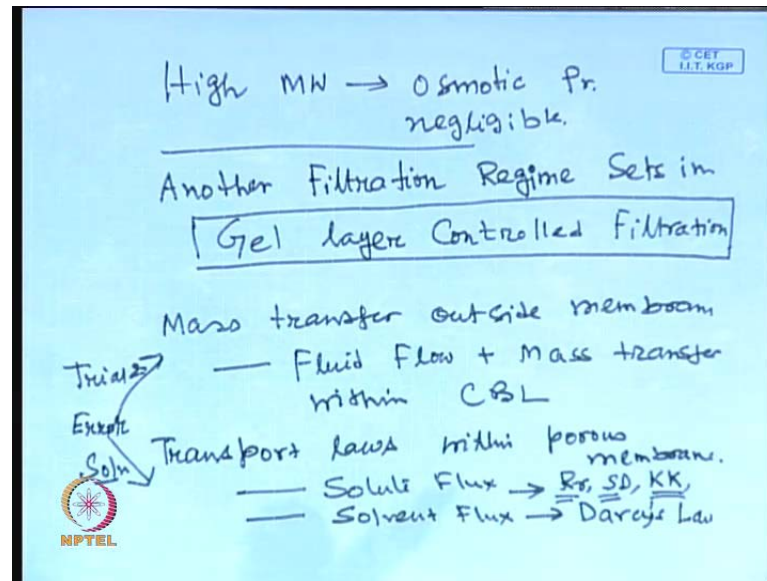 © CET
I.I.T. KGP
High MW → Osmotic Pr.
negligible.
Another Filtration Regime Sets in
Gel layer Controlled Filtration
Mass transfer outside membram
— Fluid Flow + Mass transfer
within CBL
Trial &
Error
Soln
Transport laws within porous
membrane.
— Solute Flux → Rr, SD, KK,
— Solvent Flux → Darcy's Law
NPTEL